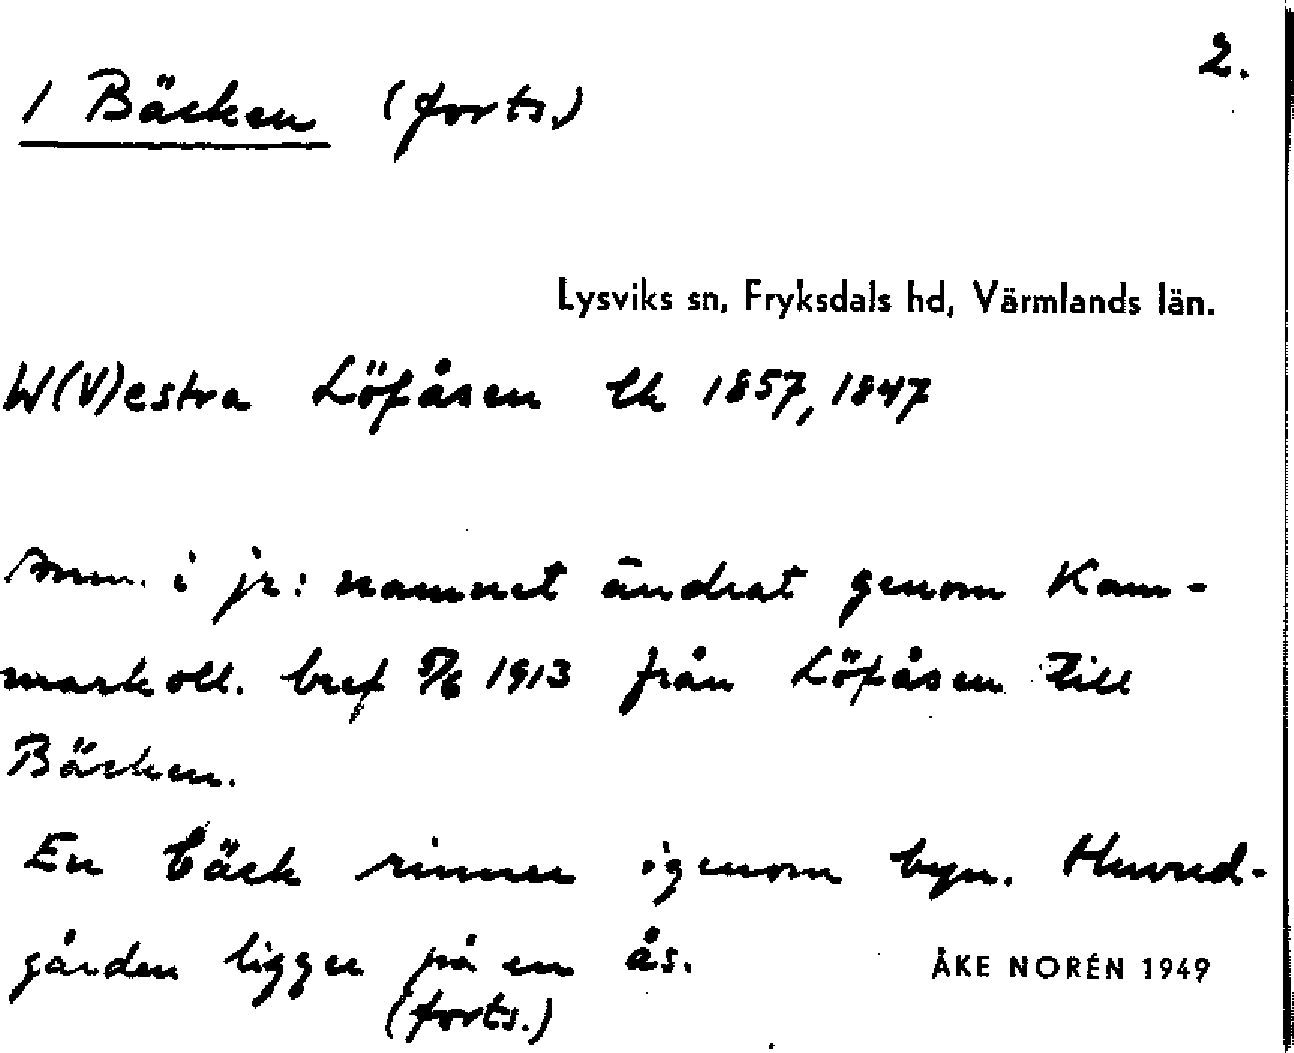 2.
/ Bäcken (forts.)
Lysviks sn, Fryksdals hd, Värmlands län.
W(V)estra Löfåsen lk 1857, 1847
Anm. i jr: namnet ändrat genom Kam-
markoll. bref 5/6 1913 från Löfåsen till
Bäcken.
En bäck rinner igenom byn. Huvud-
gården ligger på en ås.
ÅKE NORÉN 1949
(forts.)